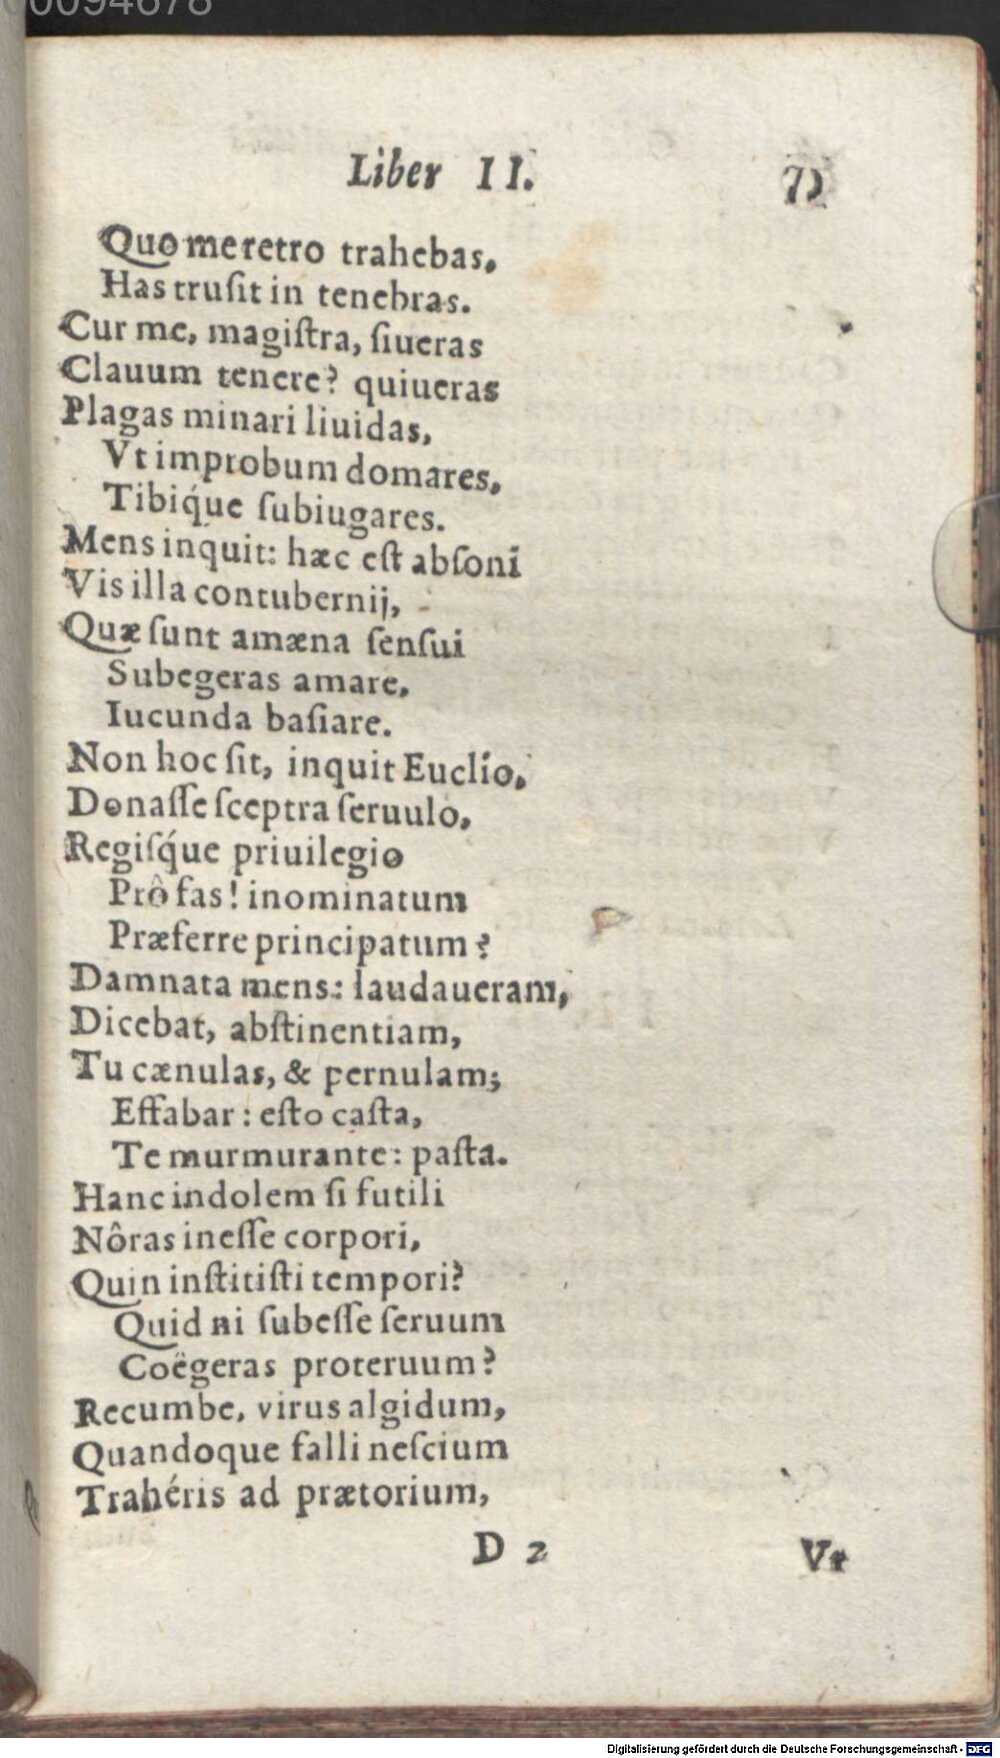 00094678
Liber II.
71
Quo me retro trahebas,
Has truſit in tenebras.
Cur me, magiſtra, ſiueras
Clauum tenere? quiueras
Plagas minari liuidas,
Vt improbum domares,
Tibiq́ue ſubiugares.
Mens inquit: hæc eſt abſoni
Vis illa contubernij,
Quæ ſunt amæna ſenſui
Subegeras amare,
Iucunda baſiare.
Non hoc ſit, inquit Euclio,
Donaſſe ſceptra ſeruulo,
Regiſq́ue priuilegio
Prô fas! inominatum
Præferre principatum?
Damnata mens: laudaueram,
Dicebat, abſtinentiam,
Tu cænulas, & pernulam;
Effabar: eſto caſta,
Te murmurante: paſta.
Hanc indolem ſi futili
Nôras ineſſe corpori,
Quin inſtitiſti tempori?
Quid ni ſubeſſe ſeruum
Coëgeras proteruum?
Recumbe, virus algidum,
Quandoque falli neſcium
Trahéris ad prætorium,
D 2
Vt
Digitalisierung gefördert durch die Deutsche Forschungsgemeinschaft - DFG